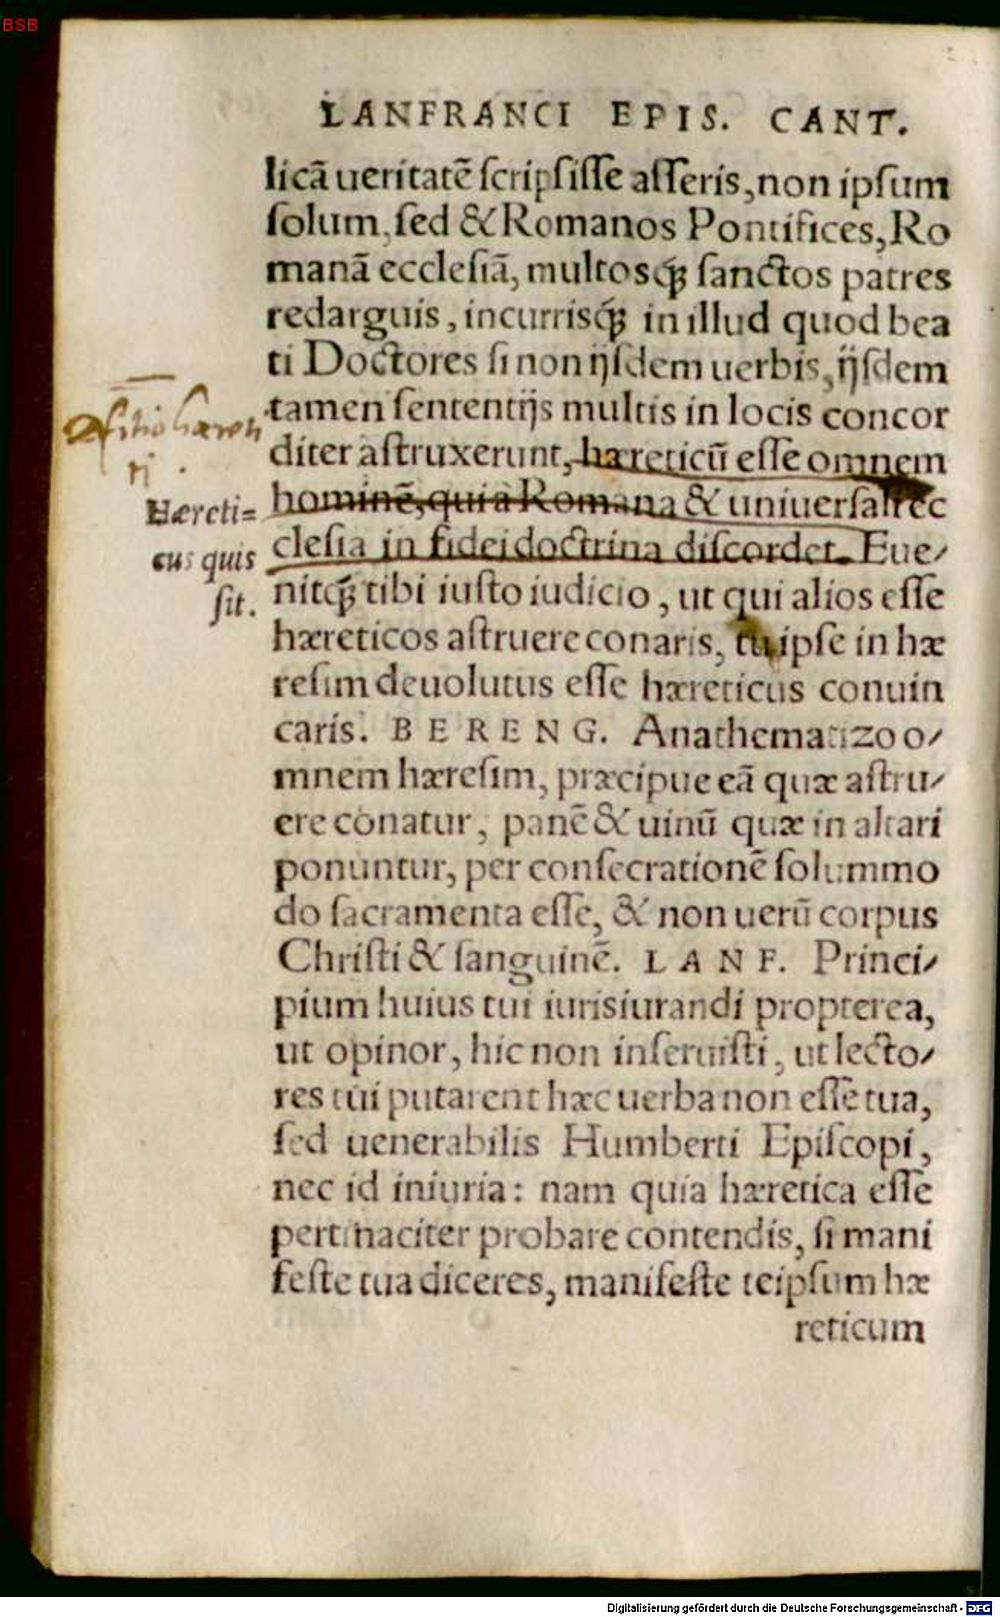 BSB
LANFRANCI EPIS. CANT.
licã ueritatẽ scripsisse asseris, non ipsum
solum, sed & Romanos Pontifices, Ro
manã ecclesiã, multosq́ꝫ sanctos patres
redarguis, incurrisq́ꝫ in illud quod bea
ti Doctores si non ijsdem uerbis, ijsdem
tamen sententijs multis in locis concor
diter astruxerunt, hæreticũ esse omnem
hominẽ, qui à Romana & uniuersali ec
clesia in fidei doctrina discordet. Eue/
Hæreti=
cus quis
sit.
nitq́ꝫ tibi iusto iudicio, ut qui alios esse
hæreticos astruere conaris, tu ipse in hæ
resim deuolutus esse hæreticus conuin
caris. BERENG. Anathematizo o/
mnem hæresim, præcipue eã quæ astru/
ere conatur, panẽ & uinũ quæ in altari
ponuntur, per consecrationẽ solummo
do sacramenta esse, & non uerũ corpus
Christi & sanguinẽ. LANF. Princi/
pium huius tui iurisiurandi propterea,
ut opinor, hic non inseruisti, ut lecto/
res tui putarent hæc uerba non esse tua,
sed uenerabilis Humberti Episcopi,
nec id iniuria: nam quia hæretica esse
pertinaciter probare contendis, si mani
feste tua diceres, manifeste teipsum hæ
reticum
Digitalisierung gefördert durch die Deutsche Forschungsgemeinschaft - DFG